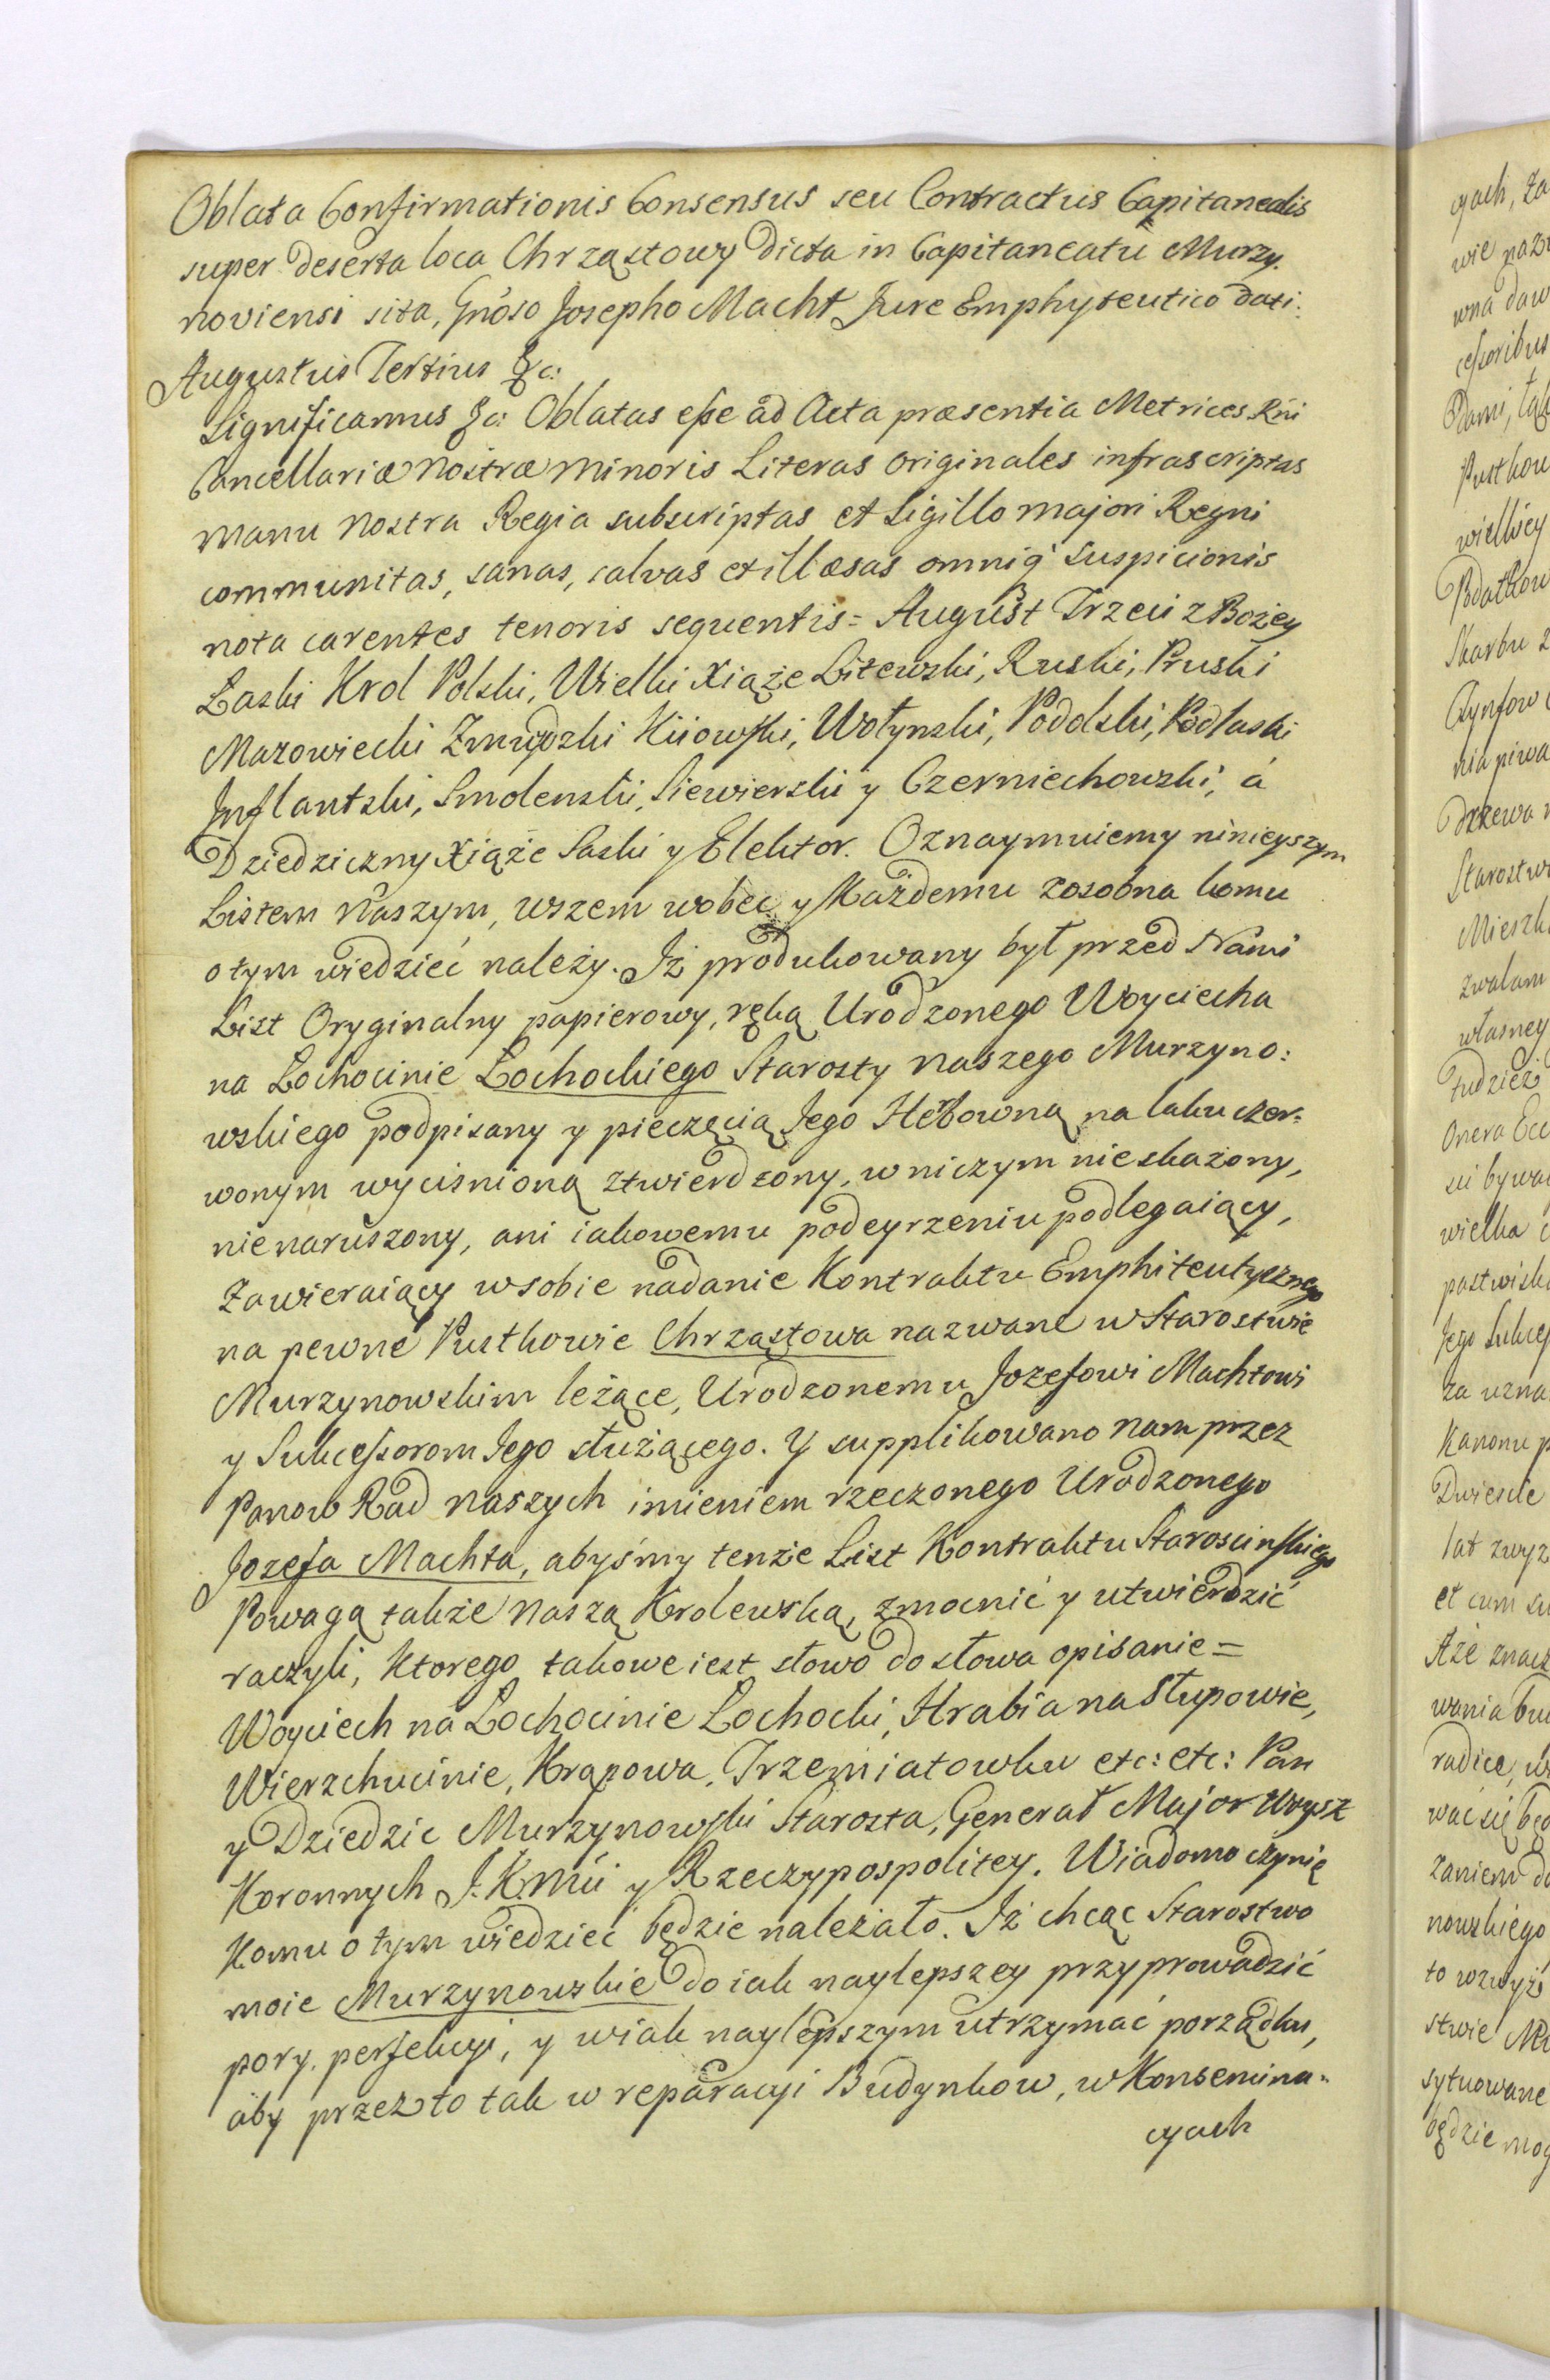 Oblata Confirmationis Consensus seu Contractus Capitanealis
super deserta loca Chrząstowy dicta in Capitaneatu Murzy-
noviensi sita, Gnoso Josepho Macht Jure Emphyteutico dati:
Augustus Tertius &c:
Significamus &c: Oblatas esse ad Acta præsentia Metrices Rni
Cancellariæ Nostræ Minoris Literas originales infrascriptas
Manu Nostra Regia subscriptas et Sigillo majori Regni
communitas, sanas, salvas et illæsas omniq́ suspicionis
nota carentes tenoris sequentis = August Trzeci z Bożey
Łaski Krol Polski, Wielki Xiąże Litewski, Ruski, Pruski
Mazowiecki Zmuydzki Kiiowski, Wołynski, Podolski, Podlaski
Inflantski, Smolenski, Siewierski y Czerniechowski, á
Dziedziczny Xiąże Saski y Elektor. Oznaymuiemy ninieyszym
Listem Naszym, wszem wobec y Każdemu zosobna komu
o tym wiedzieć należy. Iż produkowany był przed Nami
List Oryginalny papierowy, ręką Urodzonego Woyciecha
na Łochocinie Łochockiego Starosty Naszego Murzyno:
wskiego podpisany y pieczęcią Jego Herbowną na laku czer-
wonym wyciśnioną ztwierdzony, w niczym nieskażony,
nienaruszony, ani iakowemu podeyrzeniu podlegaiący,
zawieraiący w sobie nadanie Kontraktu Emphiteutycznego
na pewne Pustkowie Chrząstowa nazwane w Starostwie
Murzynowskim leżące, Urodzonemu Jozefowi Machtowi
y Sukcessorom Jego służącego. Y supplikowano Nam przez
Panow Rad Naszych imieniem rzeczonego Urodzonego
Jozefa Machta, abyśmy tenże List Kontraktu Staroscinskiego
Powagą także Naszą Krolewską, zmocnić y utwierdzić
raczyli, Ktorego takowe iest słowo do słowa opisanie =
Woyciech na Łochocinie Łochocki, Hrabia na Słupowie,
Wierzchucinie, Krąpowa, Trzemiatowku etc: etc: Pan
y Dziedzic Murzynowski Starosta, Generał Major Woysk
Koronnych J. K. Mći y Rzeczypospolitey. Wiadomo czynię
Komu o tym wiedzieć będzie należało. Iż chcąc Starostwo
moie Murzynowskie do iak naylepszey przyprowadzić
pory. perfekcyi, y w iak naylepszym utrzymać porządku,
aby przez to tak w reparacyi Budynkow, w Konsemina-
cyach
cyach, za
wie nazw
wna daw
cessoribus
Dami, tak
Pustkow
wielkiey
Podatkow
Skarbu z
Czynszow
nia piwa
Drzewa
Starostw
Mieszk
zwalam
własney
tudzież
Onera Ecc
wielka
pastwisk
Jego Sukces
za uzna
Kanonu p
Dwiescie
lat zwyz
et cum su
Aże znacz
wania bu
radice, w
wać się będ
zaniem do
nowskiego
to wzwyż
stwie Mu
sytuowane
będzie mog